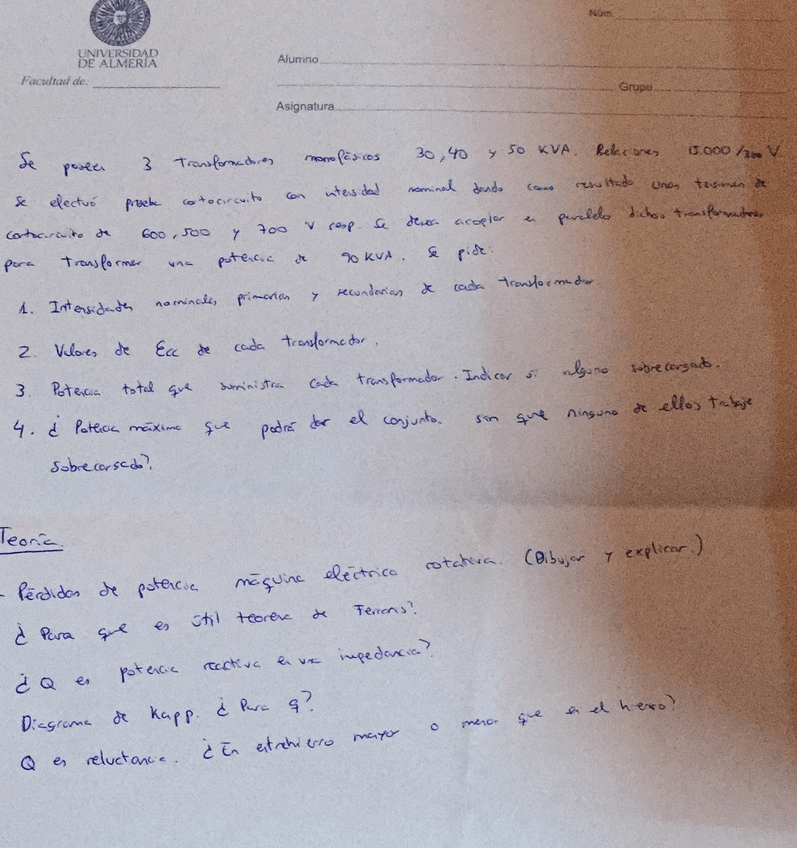 Núm.
UNIVERSIDAD
DE ALMERÍA
Alumno
Facultad de:
Grupo
Asignatura
Se poseen 3 transformadores monofásicos 30, 40 y 50 KVA. Relaciones 15.000/300 V
Se efectuó prueba cortocircuito con intesidad nominal dando como resultado unas tesiones de
cortocircuito de 600, 500 y 700 V resp. Se desea acoplar en paralelo dichos transformadores
para transformar una potencia de 90 KVA. Se pide:
1. Intensidades nominales, primarias y secundarias de cada transformador
2. Valores de Ecc de cada transformador.
3. Potecia total que suministra cada transformador. Indicar si alguno sobrecargado.
4. ¿ Potecia máxima que podrá dar el conjunto. sin que ninguno de ellos trabaje
sobrecargado?.
Teoría
- Pérdidas de potencia máquina eléctrica rotativa. (Dibujar y explicar.)
¿ Para que es útil teorema de Ferraris?.
¿ Q es potencia reactiva en una impedancia?.
Diagrama de Kapp. ¿ Para q?
Q es reluctancia. ¿ En entrehierro mayor o menor que en el hierro?